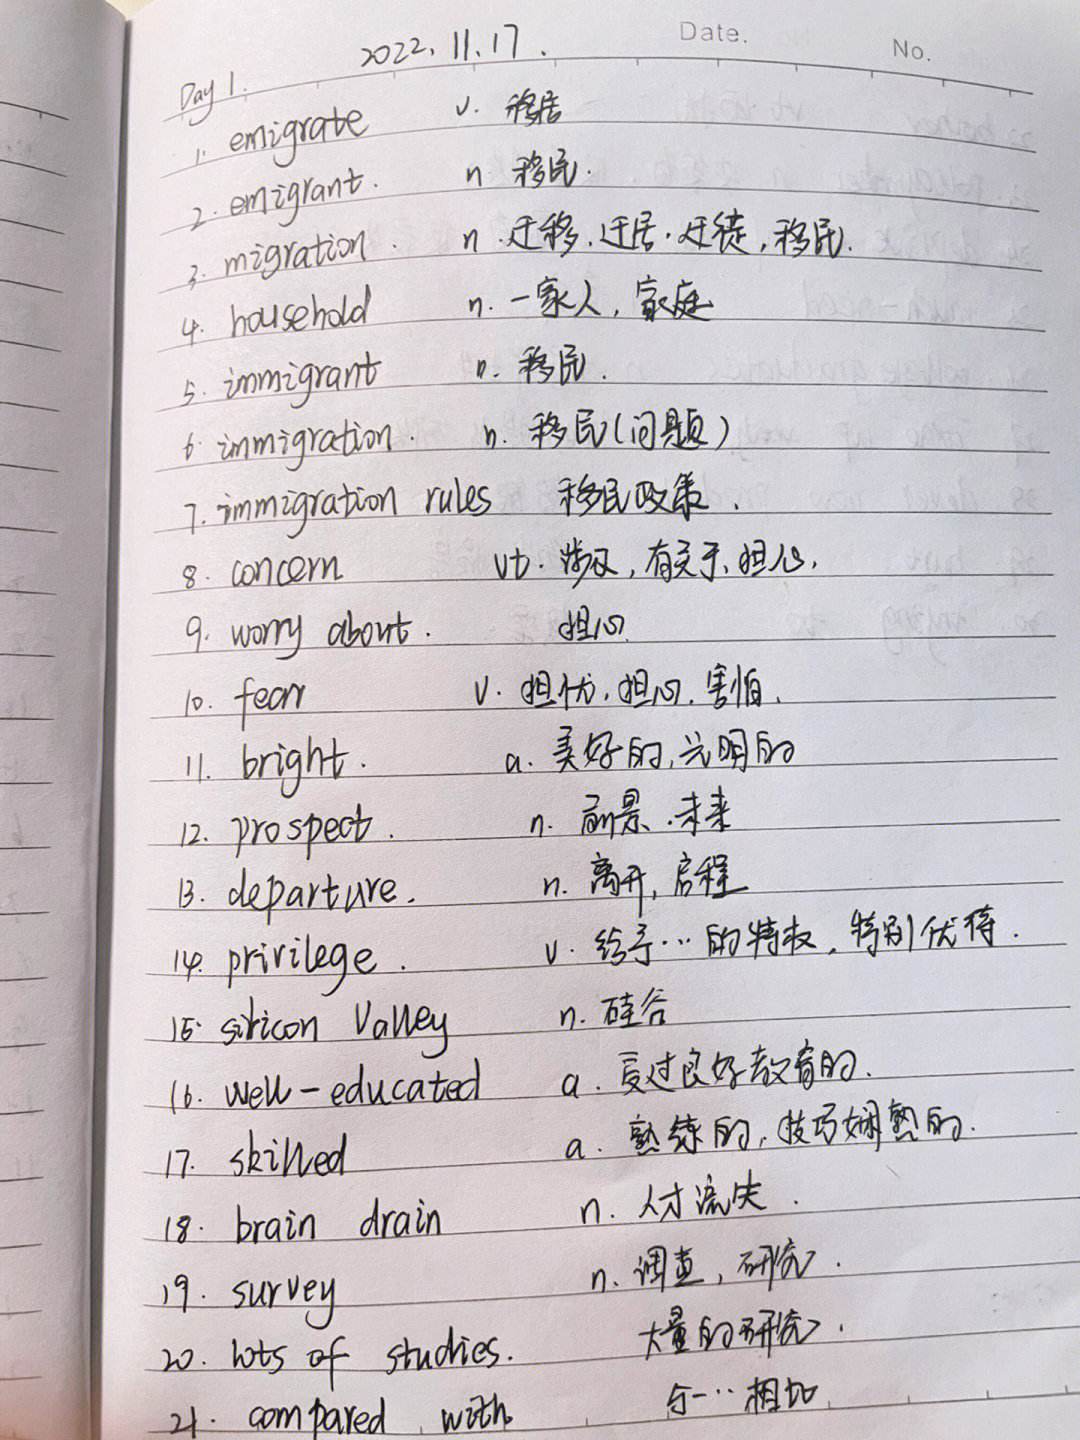 Date.
No.
2022.11.17.
Day 1.
1. emigrate v. 移居
2. emigrant. n 移民.
3. migration. n.迁移.迁居.迁徒,移民.
4. household n. 一家人, 家庭
5. immigrant n. 移民.
6. immigration. n. 移民(问题)
7. immigration rules 移民政策.
8. concern vt. 涉及, 有关于、担心.
9. worry about. 担心
10. fear v. 担忧.担心.害怕.
11. bright. a. 美好的,光明的
12. prospect. n. 前景.未来
13. departure. n. 离开,启程
14. privilege. v. 给予…的特权, 特别优待.
15. silicon Valley n. 硅谷
16. well-educated a. 受过良好教育的.
17. skilled a. 熟练的, 技巧娴熟的.
18. brain drain n. 人才流失.
19. survey n. 调查, 研究.
20. lots of studies. 大量的研究.
21. compared with 与…相比